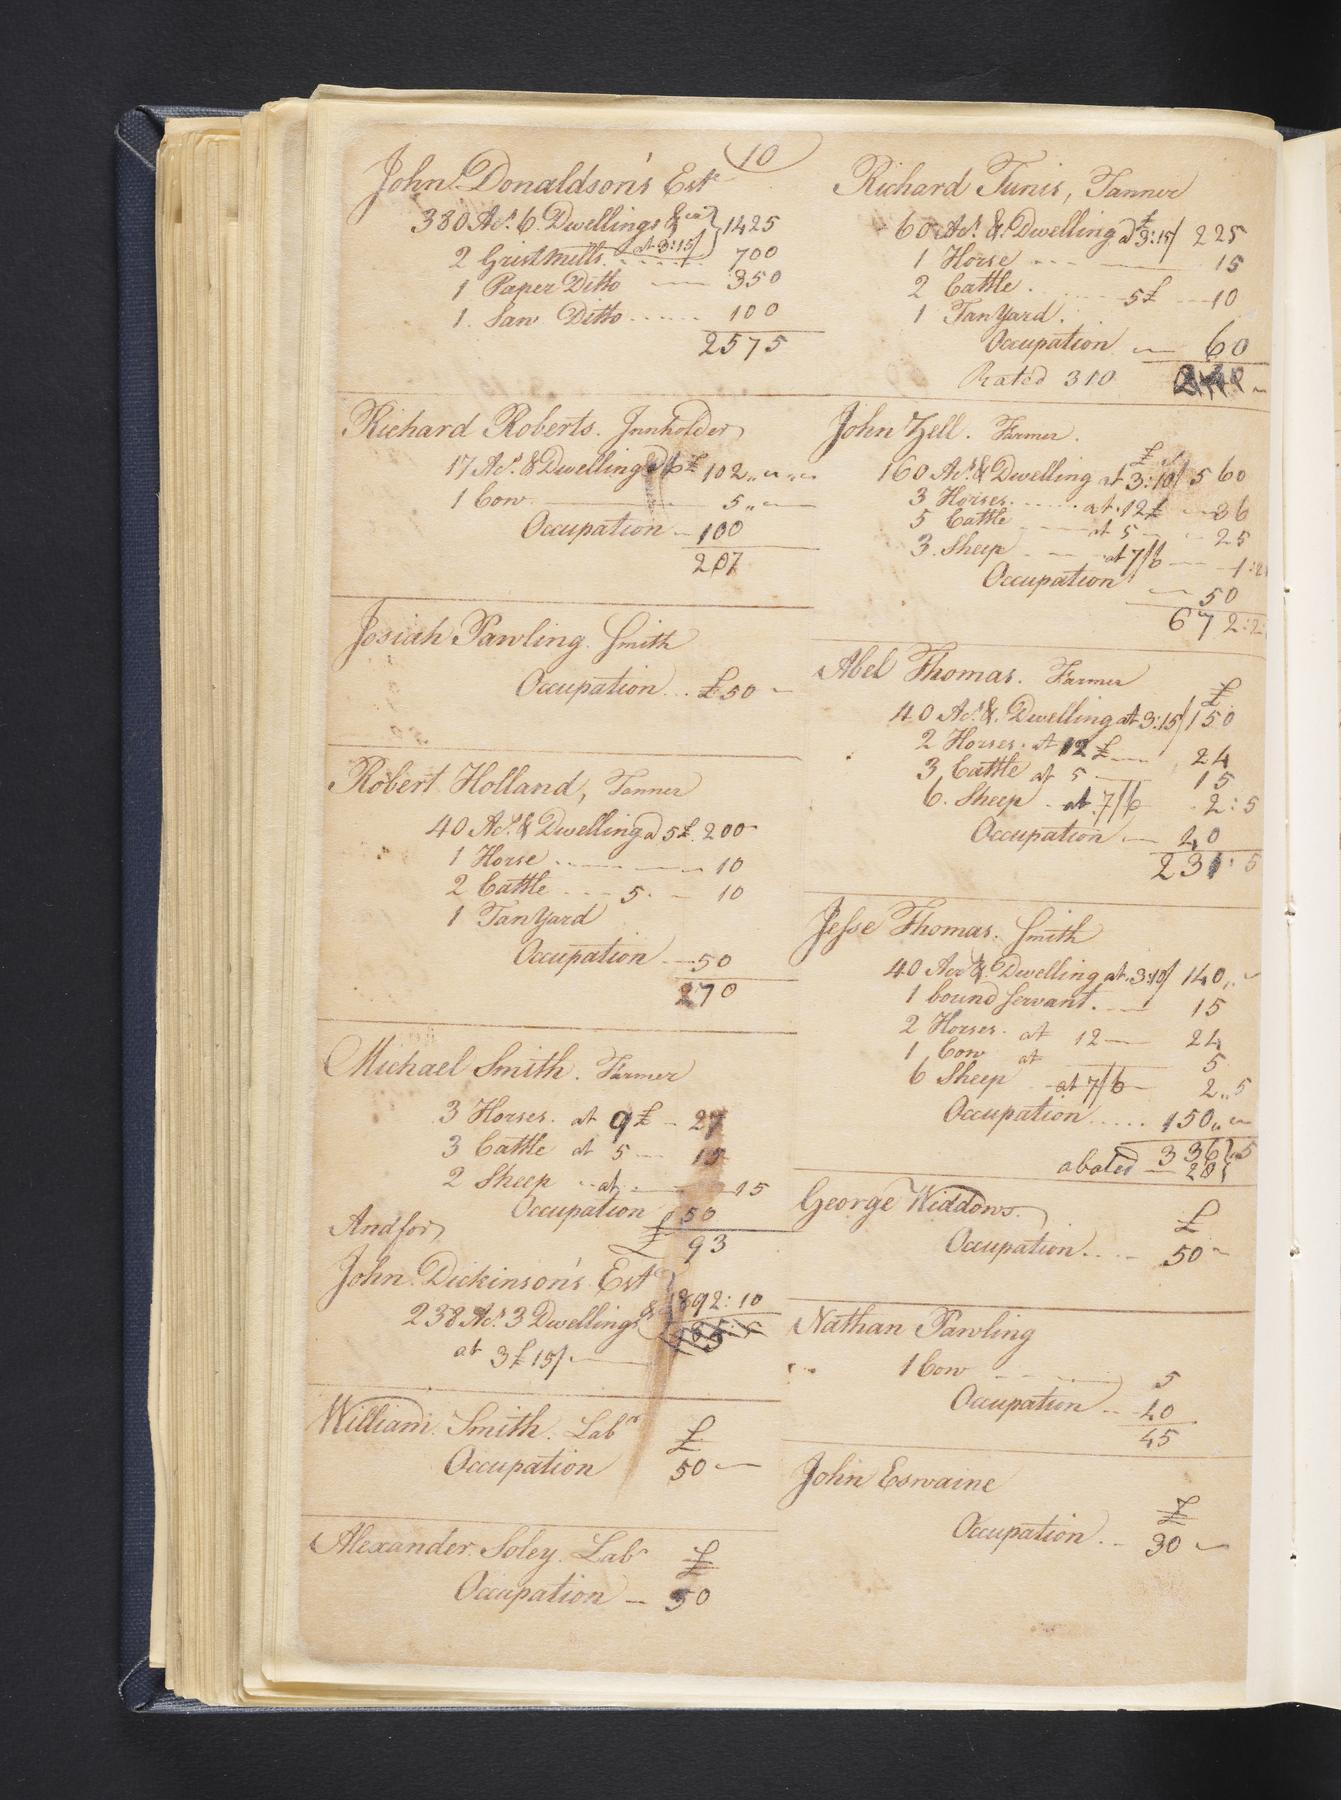 10
John Donaldson's Est.
380 Acs. 6 Dwellings &ca } 1425
at 3:15/
2 Gristmills ...... 700
1 Paper Ditto — 350
1. Saw Ditto ...... 100
2575
Richard Roberts. Innholder
17 Acs. & Dwelling a 6£ 102 „ „
1 Cow — 5 „
Occupation — 100
207
Josiah Pawling. Smith
Occupation .. £50 –
Robert Holland, Tanner
40 Acs. & Dwelling a 5£. 200
1 Horse ........ 10
2 Cattle .... 5. — 10
1 Tan Yard
Occupation — 50
270
Michael Smith. Farmer
3 Horses. at 9£ – 27
3 Cattle at 5 — 15
2 Sheep .. at — 15
Occupation 50
£ 93
And for
John Dickinson's Est
238 Acs. 3 Dwellings & 892:10
at 3£15/ —
William Smith. Labr
£
Occupation 50 —
Alexander Soley. Labr
£
Occupation — 50
Richard Tunis, Tanner
60 Acs. & Dwelling a £3:15/ 225
1 Horse ... — 15
2 Cattle . .... 5£ ... 10
1 Tan Yard.
Occupation — 60
Rated 310
John Zell. Farmer.
£
160 Acs. & Dwelling at 3:10/ 560
3 Horses ...... at 12£ — 36
5 Cattle — at 5 — 25
3. Sheep — at 7/6 — 1:2
Occupation — 50
672:2
Abel Thomas. Farmer
£
40 Acs. &. Dwelling at 3:15/ 150
2 Horses. at 12£ — 24
3 Cattle at 5 — 15
6. Sheep . at 7/6 . 2:5
Occupation — 40
231:5
Jesse Thomas. Smith
40 Acs & Dwelling at 3:10/ 140 „
1 bound servant. — 15
2 Horses. at 12 — 24
1 Cow at — 5
6 Sheep — at 7/6 — 2„5
Occupation ..... 150 „
336„5
abated — 20
George Widdows.
£
Occupation .... 50 ~
Nathan Pawling
1 Cow — 5
Occupation .. 40
45
John Eswaine
£
Occupation ... 30 ~